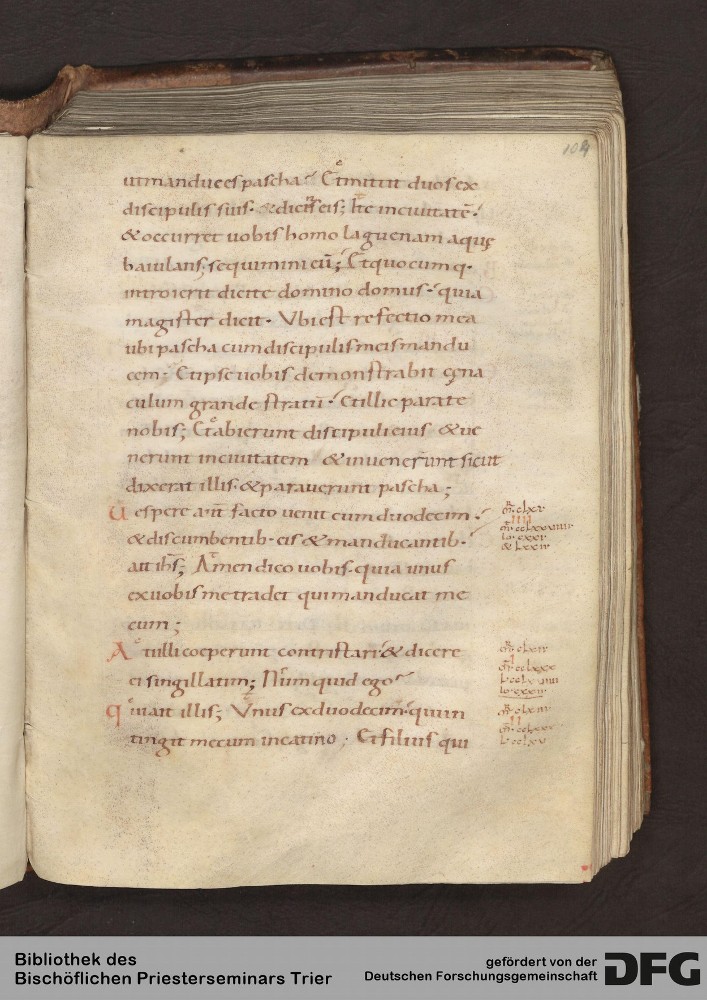 104
ut manduces pascha? Et mittit duos ex
discipulis suis. & dicit eis; Ite in civitatē.
& occurret vobis homo laguenam aquę
baiulans; sequimini eū; Et quocumq.
introierit dicite domino domus. quia
magister dicit. Ubi est refectio mea
ubi pascha cum discipulis meis mandu
cem. Et ipse vobis demonstrabit cęna
culum grande stratū. Et illic parate
nobis; Et abierunt discipuli eius & ve
nerunt in civitatem & invenerunt sicut
dixerat illis. & paraverunt pascha;
Vespere aut̄ facto venit cum duodecim.
& discumbentib. eis & manducantib.
ait ih̄s; Amen dico vobis. quia unus
ex vobis me tradet qui manducat me
cum;
At illi coeperunt contristari. & dicere
ei singillatim; Numquid ego?
Qui ait illis; Unus ex duodecim. qui in
tingit mecum in catino; Et filius qui
Bibliothek des
Bischöflichen Priesterseminars Trier
gefördert von der
Deutschen Forschungsgemeinschaft
DFG